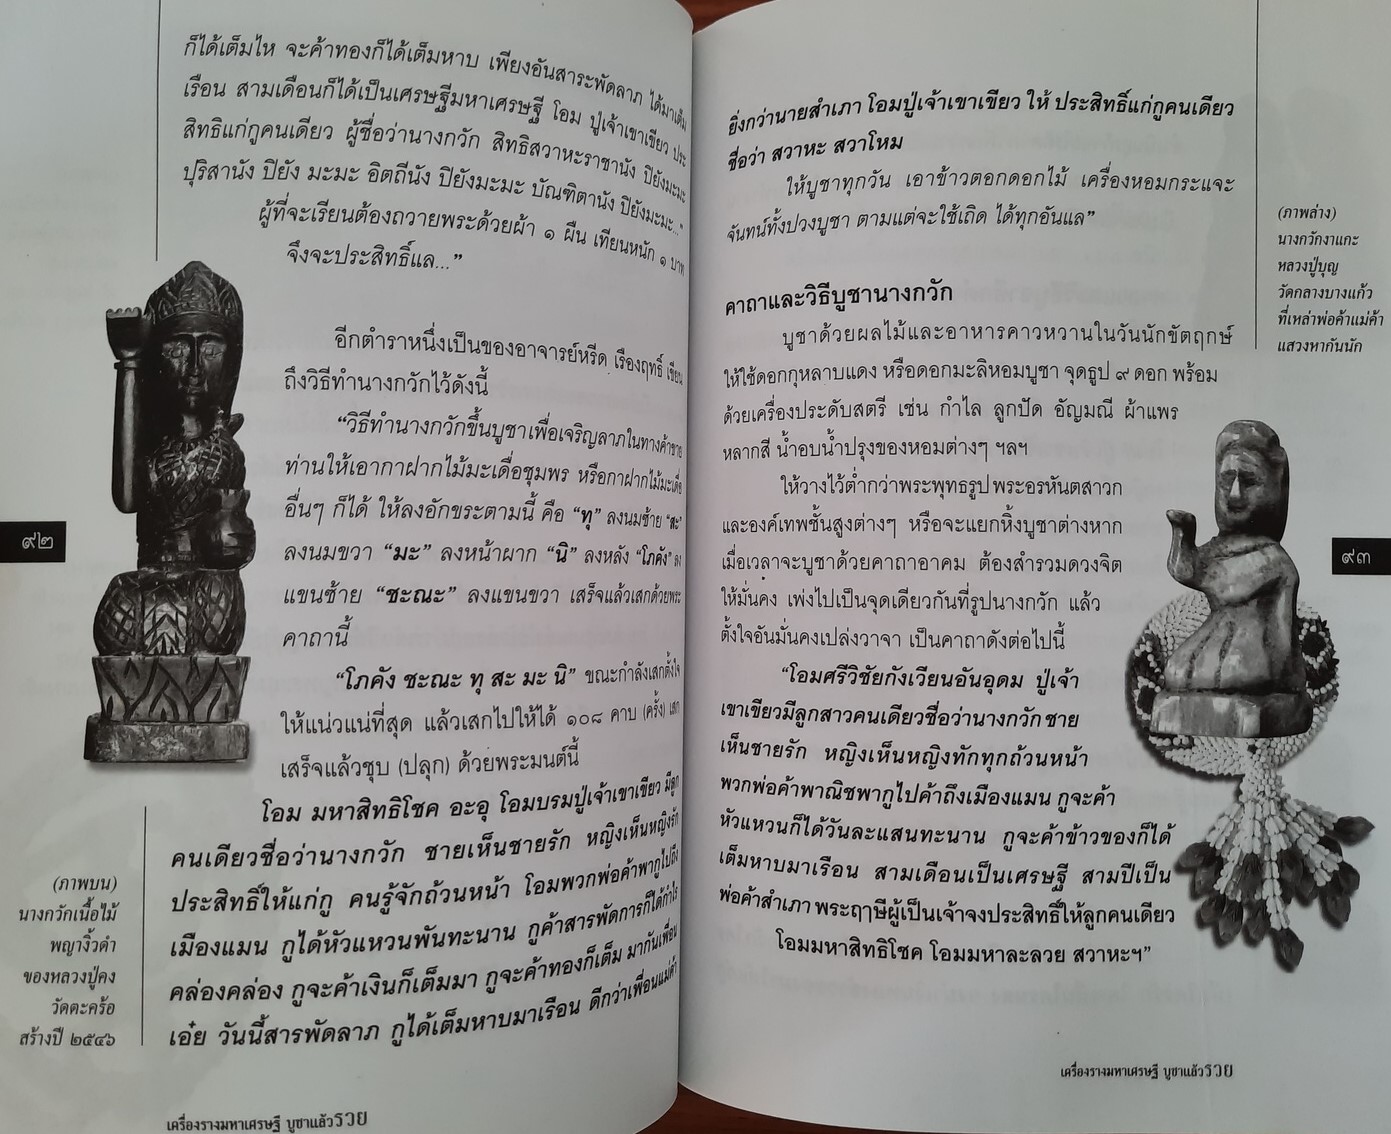 ก็ได้เต็มไห จะค้าทองก็ได้เต็มหาบ เพียงอันสาระพัดลาภ ได้มาเต็ม
เรือน สามเดือนก็ได้เป็นเศรษฐีมหาเศรษฐี โอม ปู่เจ้าเขาเขียว ประ
สิทธิแก่กูคนเดียว ผู้ชื่อว่านางกวัก สิทธิสวาหะราชานัง ปิยังมะมะ
ปุริสานัง ปิยัง มะมะ อิตถีนัง ปิยังมะมะ บัณฑิตานัง ปิยังมะมะ..."
ผู้ที่จะเรียนต้องถวายพระด้วยผ้า ๑ ผืน เทียนหนัก ๑ บาท
จึงจะประสิทธิ์แล..."
อีกตำราหนึ่งเป็นของอาจารย์หรีด เรืองฤทธิ์ เขียน
ถึงวิธีทำนางกวักไว้ดังนี้
"วิธีทำนางกวักขึ้นบูชาเพื่อเจริญลาภในทางค้าขาย
ท่านให้เอากาฝากไม้มะเดื่อชุมพร หรือกาฝากไม้มะเดื่อ
อื่นๆ ก็ได้ ให้ลงอักขระตามนี้ คือ "ทุ" ลงนมซ้าย "สะ"
ลงนมขวา "มะ" ลงหน้าผาก "นิ" ลงหลัง "โภคัง" ลง
แขนซ้าย "ชะณะ" ลงแขนขวา เสร็จแล้วเสกด้วยพระ
คาถานี้
"โภคัง ชะณะ ทุ สะ มะ นิ" ขณะกำลังเสกตั้งใจ
ให้แน่วแน่ที่สุด แล้วเสกไปให้ได้ ๑๐๘ คาบ (ครั้ง) เสก
เสร็จแล้วชุบ (ปลุก) ด้วยพระมนต์นี้
โอม มหาสิทธิโชค อะอุ โอมบรมปู่เจ้าเขาเขียว มีลูก
คนเดียวชื่อว่านางกวัก ชายเห็นชายรัก หญิงเห็นหญิงรัก
ประสิทธิ์ให้แก่กู คนรู้จักถ้วนหน้า โอมพวกพ่อค้าพากูไปถึง
เมืองแมน กูได้หัวแหวนพันทะนาน กูค้าสารพัดการก็ได้กำไร
คล่องคล่อง กูจะค้าเงินก็เต็มมา กูจะค้าทองก็เต็ม มากันเพื่อน
เอ๋ย วันนี้สารพัดลาภ กูได้เต็มหาบมาเรือน ดีกว่าเพื่อนแม่ค้า
(ภาพบน)
นางกวักเนื้อไม้
พญางิ้วดำ
ของหลวงปู่คง
วัดตะคร้อ
สร้างปี ๒๕๔๖
๙๒
เครื่องรางมหาเศรษฐี บูชาแล้วรวย
ยิ่งกว่านายสำเภา โอมปู่เจ้าเขาเขียว ให้ ประสิทธิ์แก่กูคนเดียว
ชื่อว่า สวาหะ สวาโหม
ให้บูชาทุกวัน เอาข้าวตอกดอกไม้ เครื่องหอมกระแจะ
จันทน์ทั้งปวงบูชา ตามแต่จะใช้เถิด ได้ทุกอันแล"
คาถาและวิธีบูชานางกวัก
บูชาด้วยผลไม้และอาหารคาวหวานในวันนักขัตฤกษ์
ให้ใช้ดอกกุหลาบแดง หรือดอกมะลิหอมบูชา จุดธูป ๙ ดอก พร้อม
ด้วยเครื่องประดับสตรี เช่น กำไล ลูกปัด อัญมณี ผ้าแพร
หลากสี น้ำอบน้ำปรุงของหอมต่างๆ ฯลฯ
ให้วางไว้ต่ำกว่าพระพุทธรูปพระอรหันตสาวก
และองค์เทพชั้นสูงต่างๆ หรือจะแยกหิ้งบูชาต่างหาก
เมื่อเวลาจะบูชาด้วยคาถาอาคม ต้องสำรวมดวงจิต
ให้มั่นคง เพ่งไปเป็นจุดเดียวกันที่รูปนางกวัก แล้ว
ตั้งใจอันมั่นคงเปล่งวาจา เป็นคาถาดังต่อไปนี้
"โอมศรีวิชัยกังเวียนอันอุดม ปู่เจ้า
เขาเขียวมีลูกสาวคนเดียวชื่อว่านางกวัก ชาย
เห็นชายรัก หญิงเห็นหญิงทักทุกถ้วนหน้า
พวกพ่อค้าพาณิชพากูไปค้าถึงเมืองแมน กูจะค้า
หัวแหวนก็ได้วันละแสนทะนาน กูจะค้าข้าวของก็ได้
เต็มหาบมาเรือน สามเดือนเป็นเศรษฐี สามปีเป็น
พ่อค้าสำเภา พระฤๅษีผู้เป็นเจ้าจงประสิทธิ์ให้ลูกคนเดียว
โอมมหาสิทธิโชค โอมมหาละลวย สวาหะฯ"
(ภาพล่าง)
นางกวักงาแกะ
หลวงปู่บุญ
วัดกลางบางแก้ว
ที่เหล่าพ่อค้าแม่ค้า
แสวงหากันนัก
๙๓
เครื่องรางมหาเศรษฐี บูชาแล้วรวย